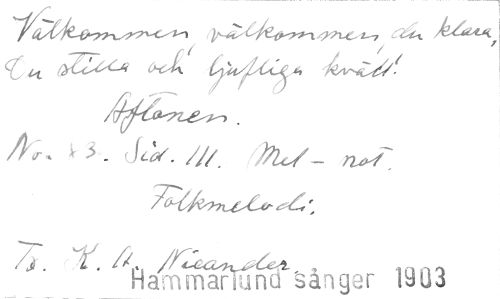 Välkommen, välkommen, du klara,
Du stilla och ljufliga kväll!
Aftonen.
No. 83. Sid. 111. Mel-not.
Folkmelodi.
To. K. A. Nicander.
Hammarlund sånger 1903